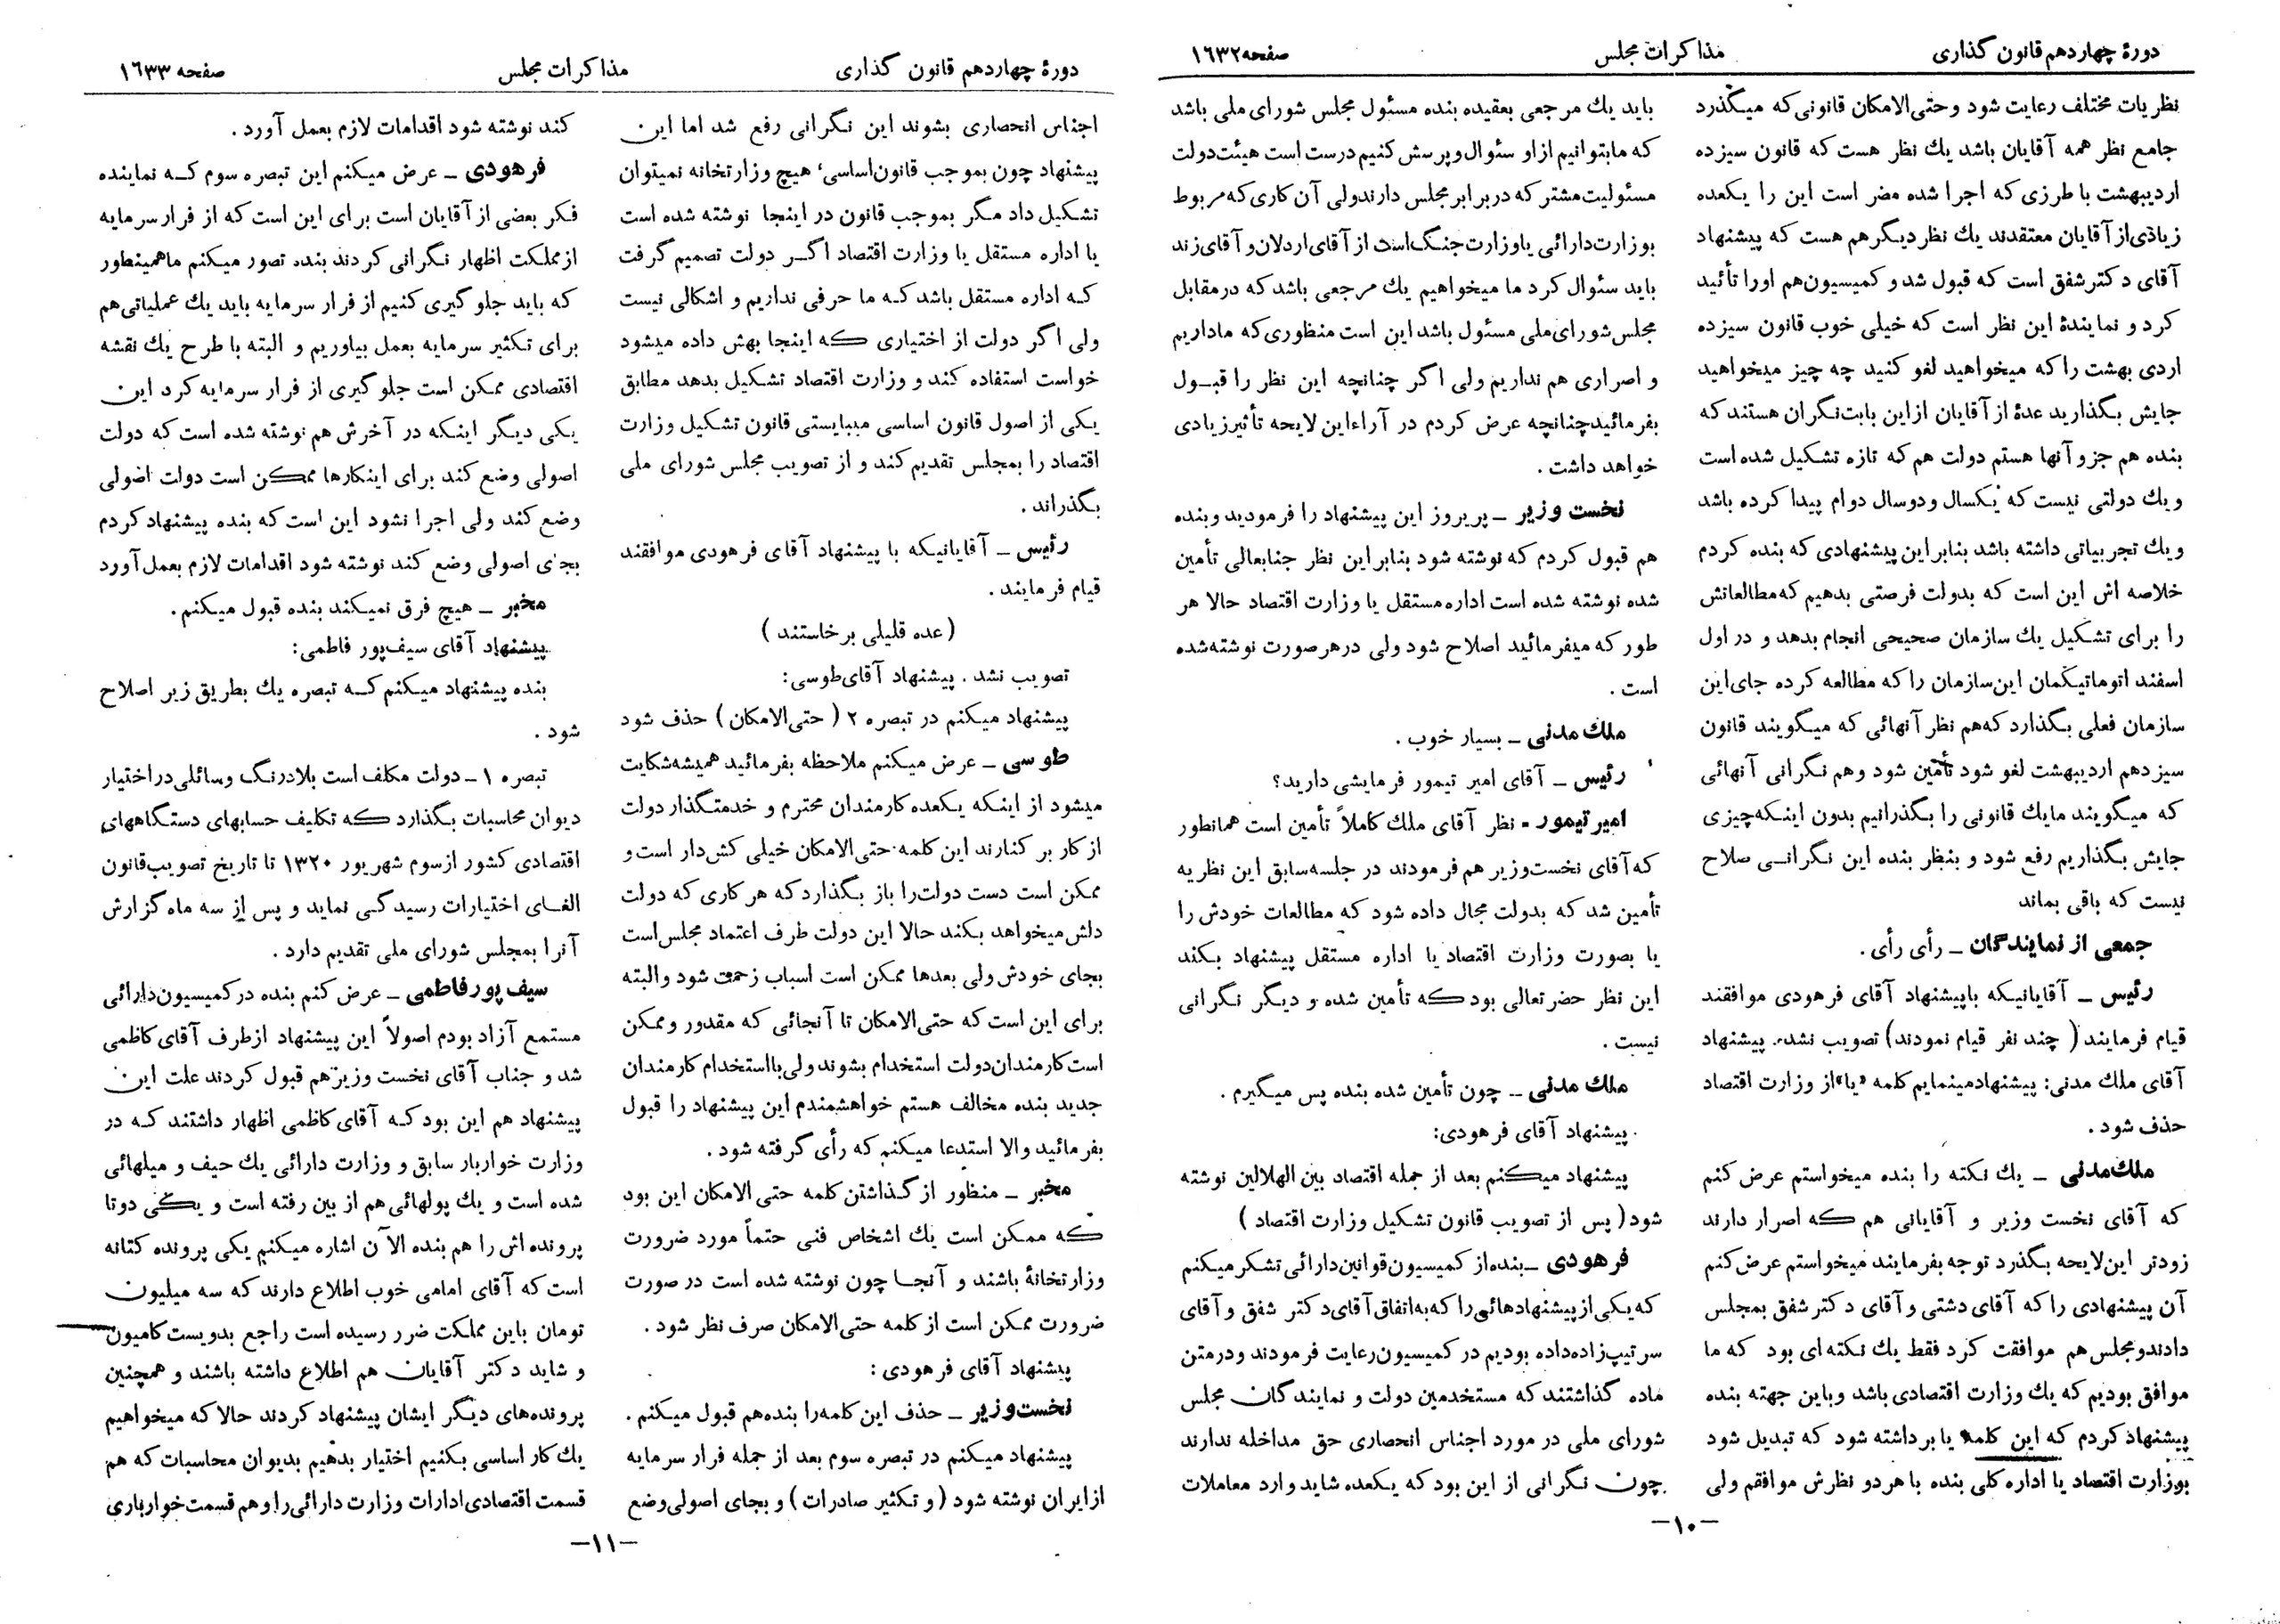 دورهٔ چهاردهم قانون گذاری
مذاکرات مجلس
صفحه ۱۶۳۲
نظریات مختلف رعایت شود و حتی‌الامکان قانونی که میگذرد
جامع نظر همه آقایان باشد یك نظر هست که قانون سیزده
اردیبهشت با طرزی که اجرا شده مضر است این را یکعده
زیادی از آقایان معتقدند یك نظر دیگر هم هست که پیشنهاد
آقای دکتر شفق است که قبول شد و کمیسیون هم اورا تأئید
کرد و نمایندهٔ این نظر است که خیلی خوب قانون سیزده
اردی بهشت را که میخواهید لغو کنید چه چیز میخواهید
جایش بگذارید عدهٔ از آقایان از این بابت نگران هستند که
بنده هم جزو آنها هستم دولت هم که تازه تشکیل شده است
و یك دولتی نیست که یکسال و دوسال دوام پیدا کرده باشد
و یك تجربیاتی داشته باشد بنابراین پیشنهادی که بنده کردم
خلاصه اش این است که بدولت فرصتی بدهیم که مطالعاتش
را برای تشکیل یك سازمان صحیحی انجام بدهد و در اول
اسفند اتوماتیکمان این سازمان را که مطالعه کرده جای این
سازمان فعلی بگذارد که هم نظر آنهائی که میگویند قانون
سیزدهم اردیبهشت لغو شود تأمین شود و هم نگرانی آنهائی
که میگویند ما یك قانونی را بگذرانیم بدون اینکه چیزی
جایش بگذاریم رفع شود و بنظر بنده این نگرانی صلاح
نیست که باقی بماند
جمعی از نمایندگان ــ رأی رأی .
رئیس ــ آقایانیکه با پیشنهاد آقای فرهودی موافقند
قیام فرمایند ( چند نفر قیام نمودند) تصویب نشد. پیشنهاد
آقای ملك مدنی: پیشنهاد مینمایم کلمه «یا» از وزارت اقتصاد
حذف شود .
ملك مدنی ــ یك نکته را بنده میخواستم عرض کنم
که آقای نخست وزیر و آقایانی هم که اصرار دارند
زودتر این لایحه بگذرد توجه بفرمایند میخواستم عرض کنم
آن پیشنهادی را که آقای دشتی و آقای دکتر شفق بمجلس
دادند و مجلس هم موافقت کرد فقط یك نکته ای بود که ما
موافق بودیم که یك وزارت اقتصادی باشد و باین جهته بنده
پیشنهاد کردم که این کلمه یا برداشته شود که تبدیل شود
بوزارت اقتصاد یا اداره کلی بنده با هر دو نظرش موافقم ولی
باید یك مرجعی بعقیده بنده مسئول مجلس شورای ملی باشد
که ما بتوانیم از او سئوال و پرسش کنیم درست است هیئت دولت
مسئولیت مشترکه در برابر مجلس دارند ولی آن کاری که مربوط
بوزارت دارائی یا وزارت جنگ است از آقای اردلان و آقای زند
باید سئوال کرد ما میخواهیم یك مرجعی باشد که در مقابل
مجلس شورای ملی مسئول باشد این است منظوری که ما داریم
و اصراری هم نداریم ولی اگر چنانچه این نظر را قبول
بفرمائید چنانچه عرض کردم در آراء این لایحه تأثیر زیادی
خواهد داشت .
نخست وزیر ــ پریروز این پیشنهاد را فرمودید و بنده
هم قبول کردم که نوشته شود بنابراین نظر جنابعالی تأمین
شده نوشته شده است اداره مستقل یا وزارت اقتصاد حالا هر
طور که میفرمائید اصلاح شود ولی در هر صورت نوشته شده
است .
ملك مدنی ــ بسیار خوب .
رئیس ــ آقای امیر تیمور فرمایشی دارید؟
امیر تیمور ــ نظر آقای ملك کاملاً تأمین است همانطور
که آقای نخست وزیر هم فرمودند در جلسه سابق این نظریه
تأمین شد که بدولت مجال داده شود که مطالعات خودش را
یا بصورت وزارت اقتصاد یا اداره مستقل پیشنهاد بکند
این نظر حضرتعالی بود که تأمین شده و دیگر نگرانی
نیست .
ملك مدنی ــ چون تأمین شده بنده پس میگیرم .
پیشنهاد آقای فرهودی:
پیشنهاد میکنم بعد از جمله اقتصاد بین الهلالین نوشته
شود ( پس از تصویب قانون تشکیل وزارت اقتصاد )
فرهودی ــ بنده از کمیسیون قوانین دارائی تشکر میکنم
که یکی از پیشنهادهائی را که به اتفاق آقای دکتر شفق و آقای
سرتیپ زاده داده بودیم در کمیسیون رعایت فرمودند و در متن
ماده گذاشتند که مستخدمین دولت و نمایندگان مجلس
شورای ملی در مورد اجناس انحصاری حق مداخله ندارند
چون نگرانی از این بود که یکعده شاید وارد معاملات
ــ ۱۰ ــ
دورهٔ چهاردهم قانون گذاری
مذاکرات مجلس
صفحه ۱۶۳۳
اجناس انحصاری بشوند این نگرانی رفع شد اما این
پیشنهاد چون بموجب قانون اساسی، هیچ وزارتخانه نمیتوان
تشکیل داد مگر بموجب قانون در اینجا نوشته شده است
یا اداره مستقل یا وزارت اقتصاد اگر دولت تصمیم گرفت
که اداره مستقل باشد که ما حرفی نداریم و اشکالی نیست
ولی اگر دولت از اختیاری که اینجا بهش داده میشود
خواست استفاده کند و وزارت اقتصاد تشکیل بدهد مطابق
یکی از اصول قانون اساسی میبایستی قانون تشکیل وزارت
اقتصاد را بمجلس تقدیم کند و از تصویب مجلس شورای ملی
بگذراند .
رئیس ــ آقایانیکه با پیشنهاد آقای فرهودی موافقند
قیام فرمایند .
(عده قلیلی برخاستند )
تصویب نشد . پیشنهاد آقای طوسی:
پیشنهاد میکنم در تبصره ۲ ( حتی‌الامکان ) حذف شود
طوسی ــ عرض میکنم ملاحظه بفرمائید همیشه شکایت
میشود از اینکه یکعده کارمندان محترم و خدمتگذار دولت
از کار بر کنارند این کلمه حتی‌الامکان خیلی کش‌دار است و
ممکن است دست دولت را باز بگذارد که هر کاری که دولت
دلش میخواهد بکند حالا این دولت طرف اعتماد مجلس است
بجای خودش ولی بعدها ممکن است اسباب زحمت شود و البته
برای این است که حتی‌الامکان تا آنجائی که مقدور و ممکن
است کارمندان دولت استخدام بشوند ولی با استخدام کارمندان
جدید بنده مخالف هستم خواهشمندم این پیشنهاد را قبول
بفرمائید والا استدعا میکنم که رأی گرفته شود .
مخبر ــ منظور از گذاشتن کلمه حتی الامکان این بود
که ممکن است یك اشخاص فنی حتماً مورد ضرورت
وزارتخانهٔ باشند و آنجا چون نوشته شده است در صورت
ضرورت ممکن است از کلمه حتی‌الامکان صرف نظر شود .
پیشنهاد آقای فرهودی :
نخست وزیر ــ حذف این کلمه را بنده هم قبول میکنم .
پیشنهاد میکنم در تبصره سوم بعد از جمله فرار سرمایه
از ایران نوشته شود ( و تکثیر صادرات ) و بجای اصولی وضع
کند نوشته شود اقدامات لازم بعمل آورد .
فرهودی ــ عرض میکنم این تبصره سوم که نماینده
فکر بعضی از آقایان است برای این است که از فرار سرمایه
از مملکت اظهار نگرانی کردند بنده تصور میکنم ما همینطور
که باید جلو گیری کنیم از فرار سرمایه باید یك عملیاتی هم
برای تکثیر سرمایه بعمل بیاوریم و البته با طرح یك نقشه
اقتصادی ممکن است جلو گیری از فرار سرمایه کرد این
یکی دیگر اینکه در آخرش هم نوشته شده است که دولت
اصولی وضع کند برای اینکارها ممکن است دولت اصولی
وضع کند ولی اجرا نشود این است که بنده پیشنهاد کردم
بجای اصولی وضع کند نوشته شود اقدامات لازم بعمل آورد
مخبر ــ هیچ فرق نمیکند بنده قبول میکنم .
پیشنهاد آقای سیف‌پور فاطمی:
بنده پیشنهاد میکنم که تبصره یك بطریق زیر اصلاح
شود .
تبصره ۱ ــ دولت مکلف است بلادرنگ وسائلی در اختیار
دیوان محاسبات بگذارد که تکلیف حسابهای دستگاههای
اقتصادی کشور از سوم شهریور ۱۳۲۰ تا تاریخ تصویب قانون
الغای اختیارات رسیدگی نماید و پس از سه ماه گزارش
آنرا بمجلس شورای ملی تقدیم دارد .
سیف پور فاطمی ــ عرض کنم بنده در کمیسیون دارائی
مستمع آزاد بودم اصولاً این پیشنهاد از طرف آقای کاظمی
شد و جناب آقای نخست وزیر هم قبول کردند علت این
پیشنهاد هم این بود که آقای کاظمی اظهار داشتند که در
وزارت خواربار سابق و وزارت دارائی یك حیف و میلهائی
شده است و یك پولهائی هم از بین رفته است و یکی دو تا
پرونده‌اش را هم بنده الآن اشاره میکنم یکی پرونده کتانه
است که آقای امامی خوب اطلاع دارند که سه میلیون
تومان باین مملکت ضرر رسیده است راجع بدویست کامیون
و شاید دکتر آقایان هم اطلاع داشته باشند و همچنین
پرونده‌های دیگر ایشان پیشنهاد کردند حالا که میخواهیم
یك کار اساسی بکنیم اختیار بدهیم بدیوان محاسبات که هم
قسمت اقتصادی ادارات وزارت دارائی را و هم قسمت خوارباری
ــ ۱۱ ــ